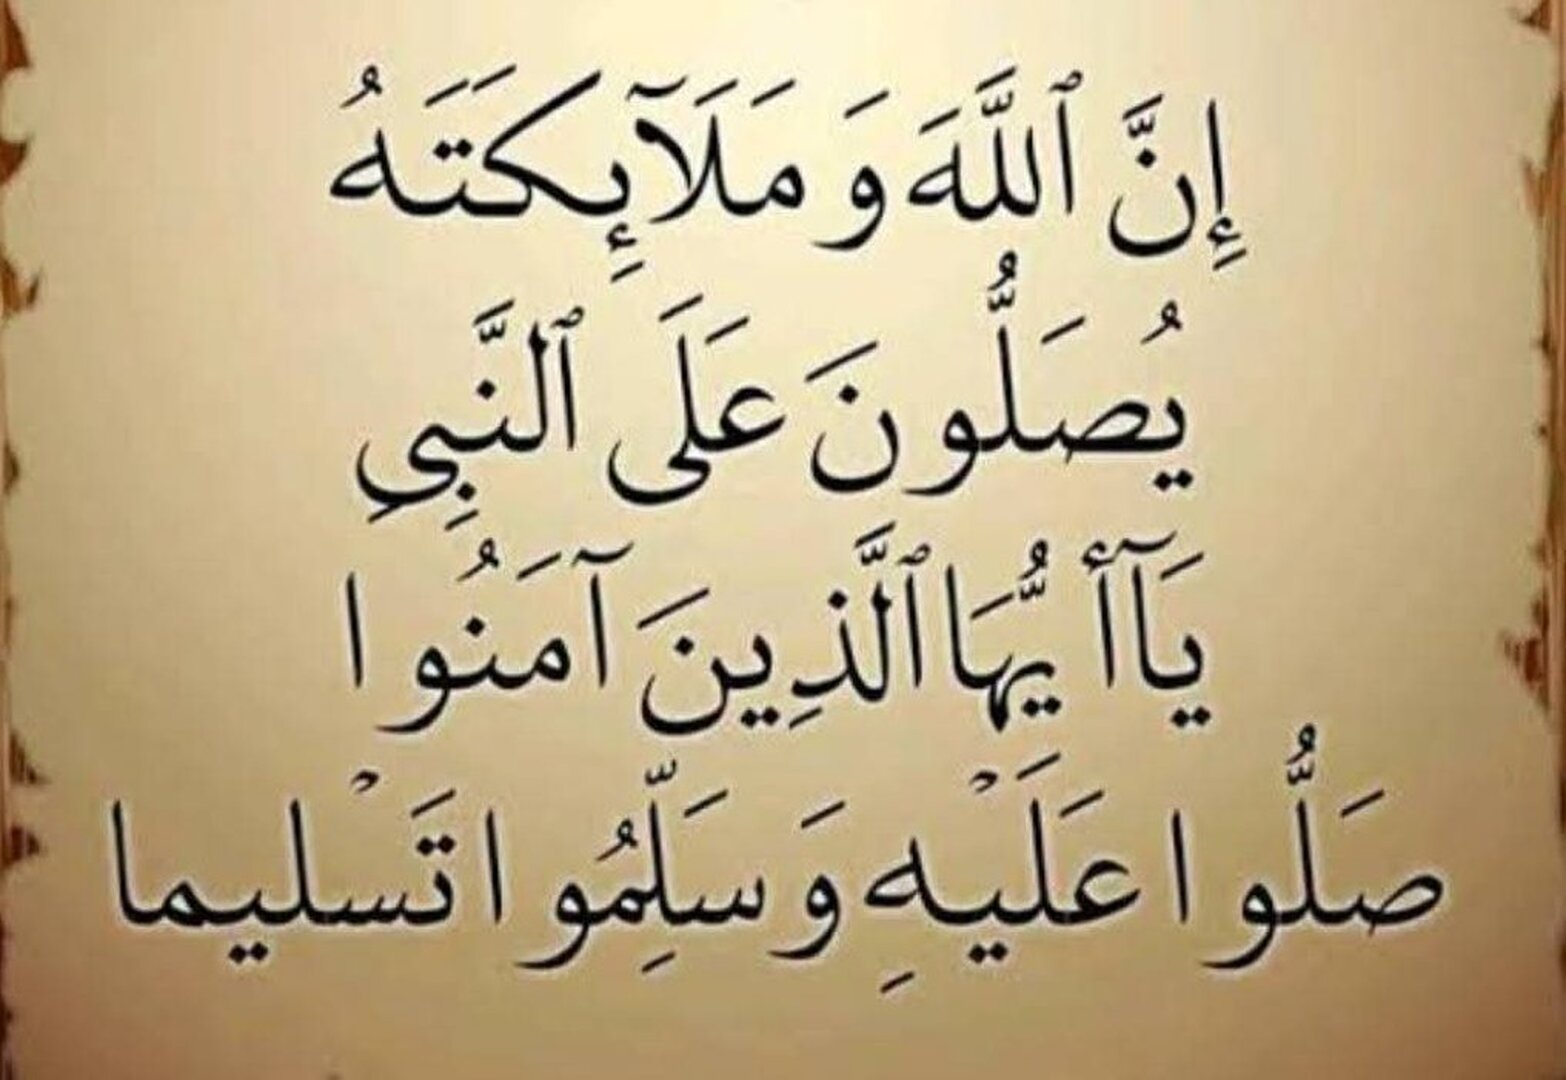 إِنَّ ٱللَّهَ وَ مَلَآئِكَتَهُ
يُصَلُّونَ عَلَى ٱلنَّبِىِ
يَآأَيُّهَا ٱلَّذِينَ آمَنُوا
صَلُّوا عَلَيْهِ وَ سَلِّمُوا تَسْليما